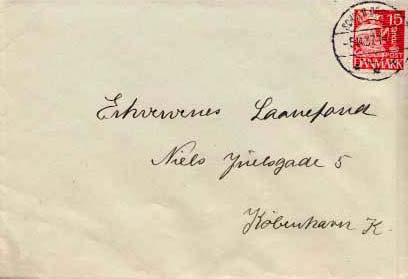 15
DANMARK
Erhvervenes Laanefond
Niels Juelsgade 5
København K.